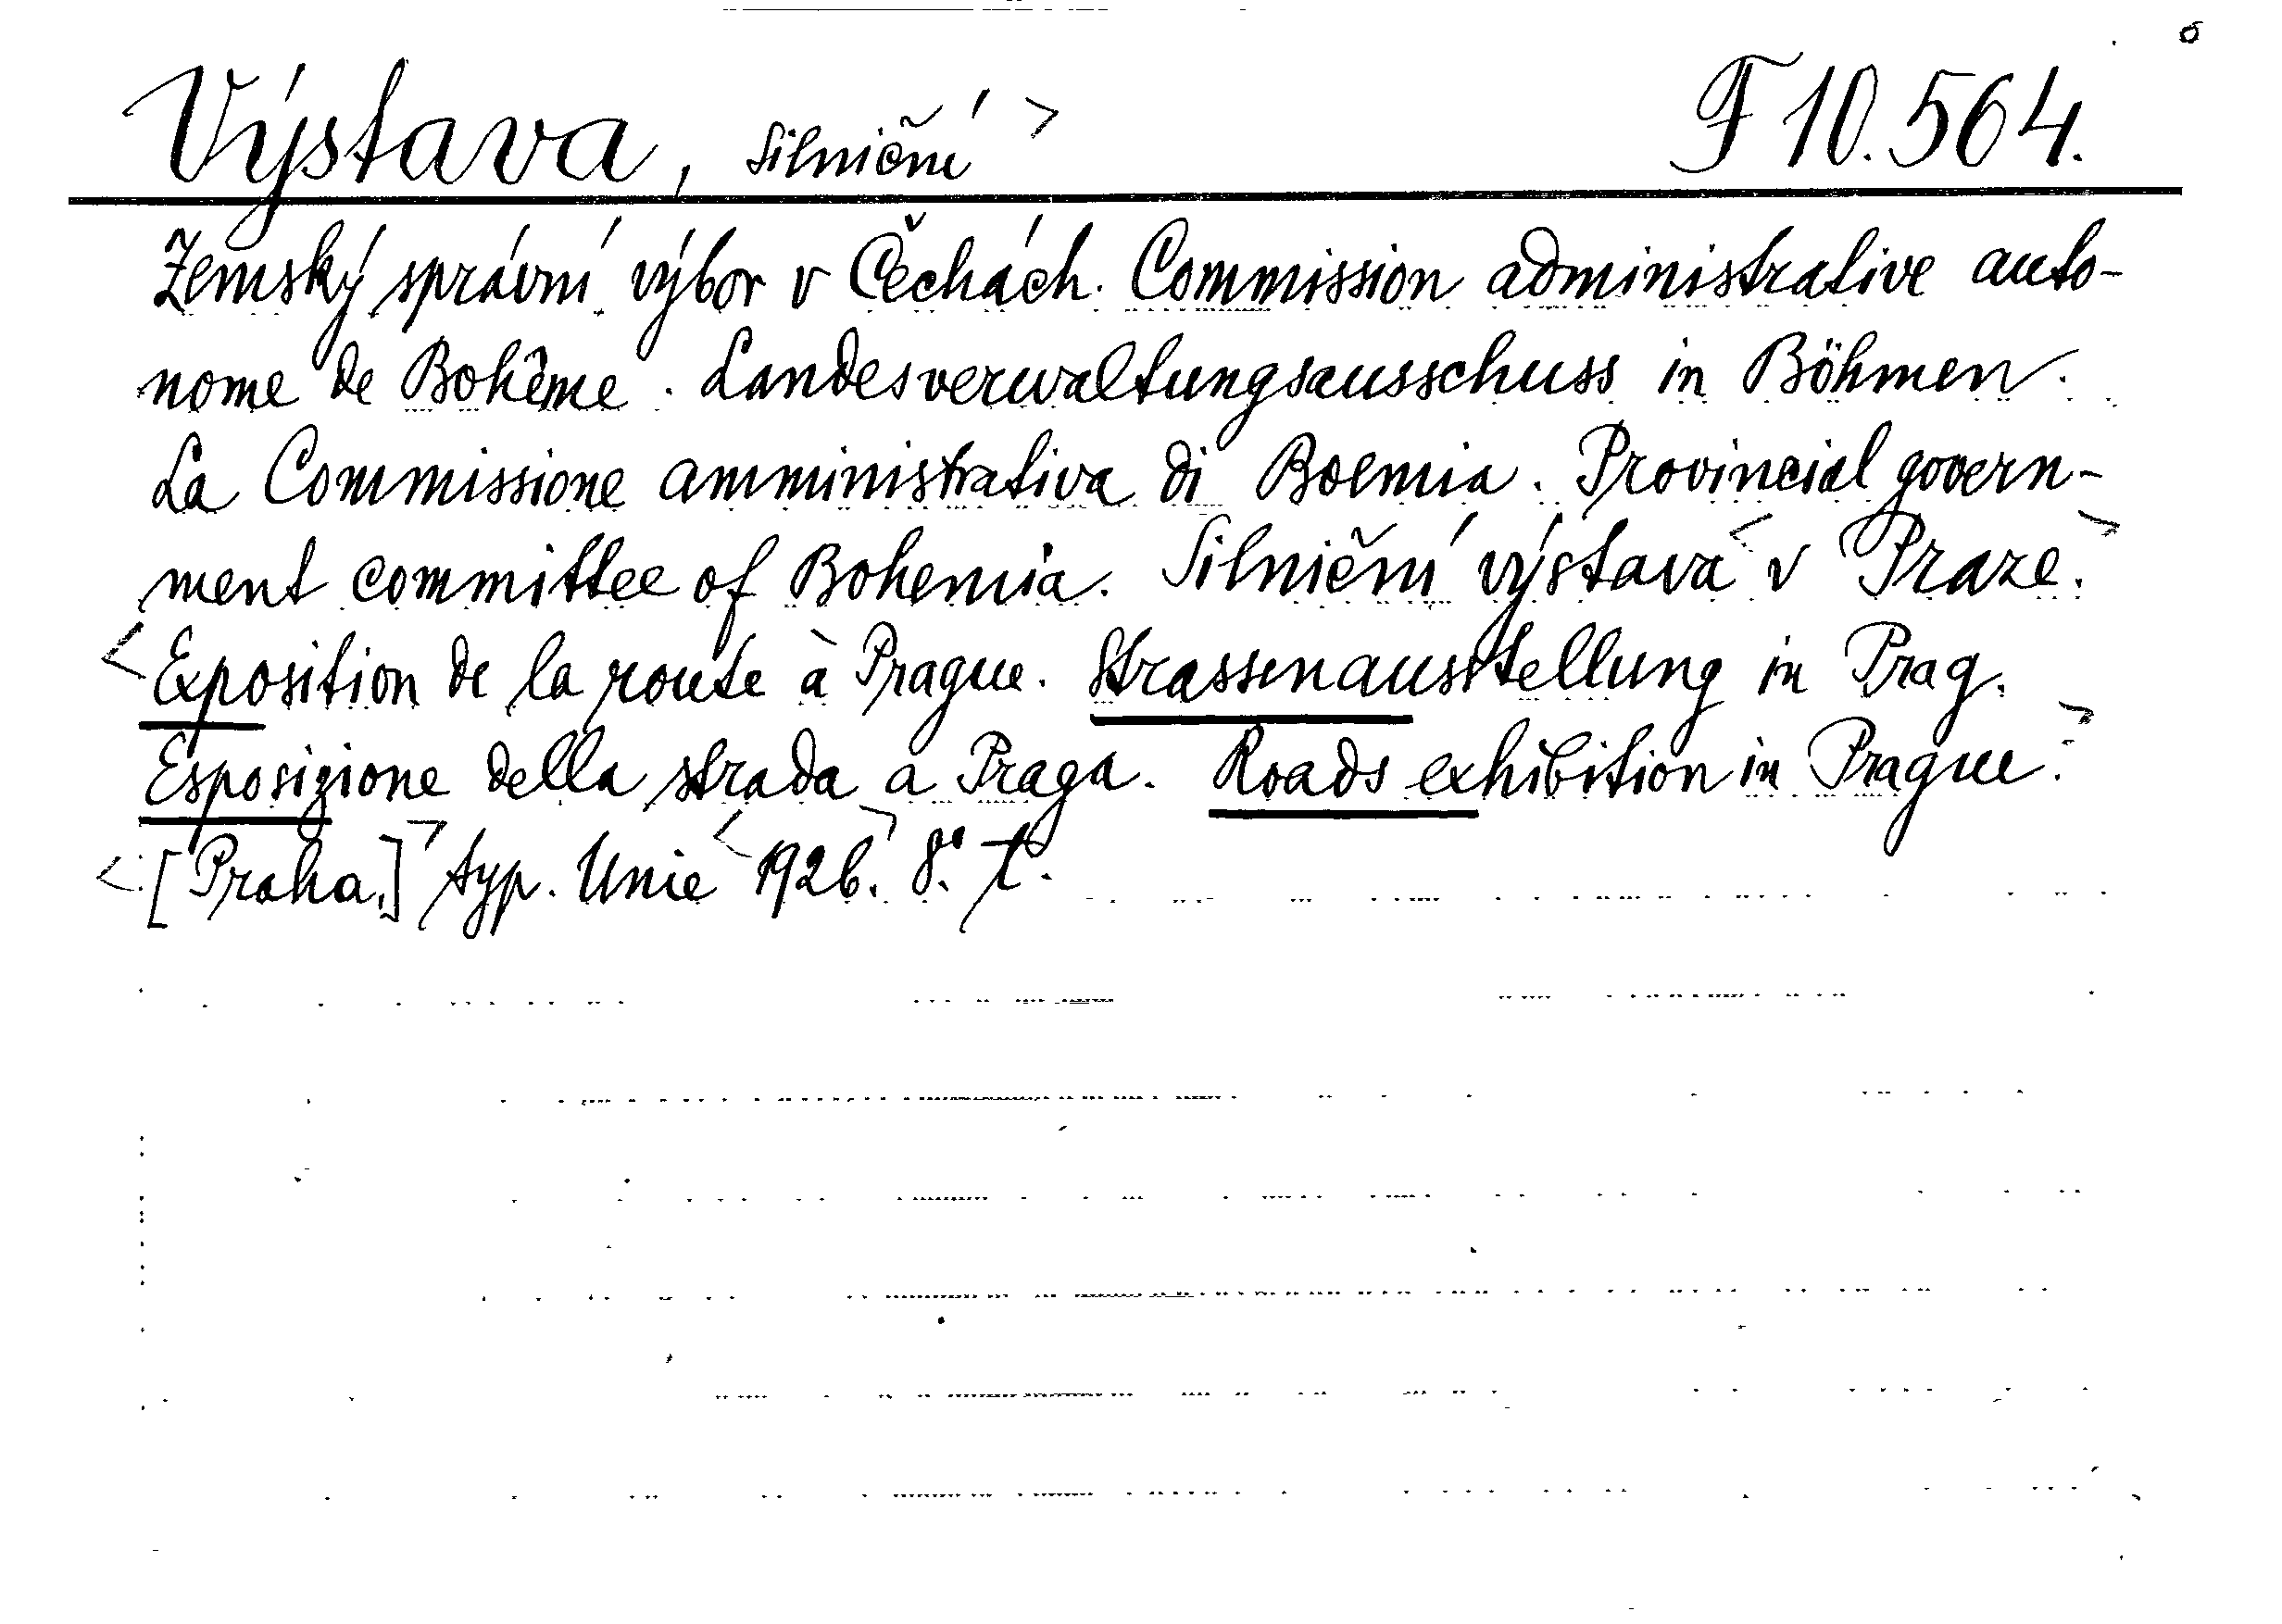 Výstava, silniční > F 10.564.
Zemský správní výbor v Čechách. Commission administrative auto-
nome de Bohême. Landesverwaltungsausschuss in Böhmen.
La Commissione amministrativa di Boemia. Provincial govern-
ment committee of Bohemia. Silniční výstava < v Praze. >
< Exposition de la route à Prague. Strassenausstellung in Prag.
Esposizione della strada a Praga. Roads exhibition in Prague. >
< [Praha.] > typ. Unie < 1926. > 8°.